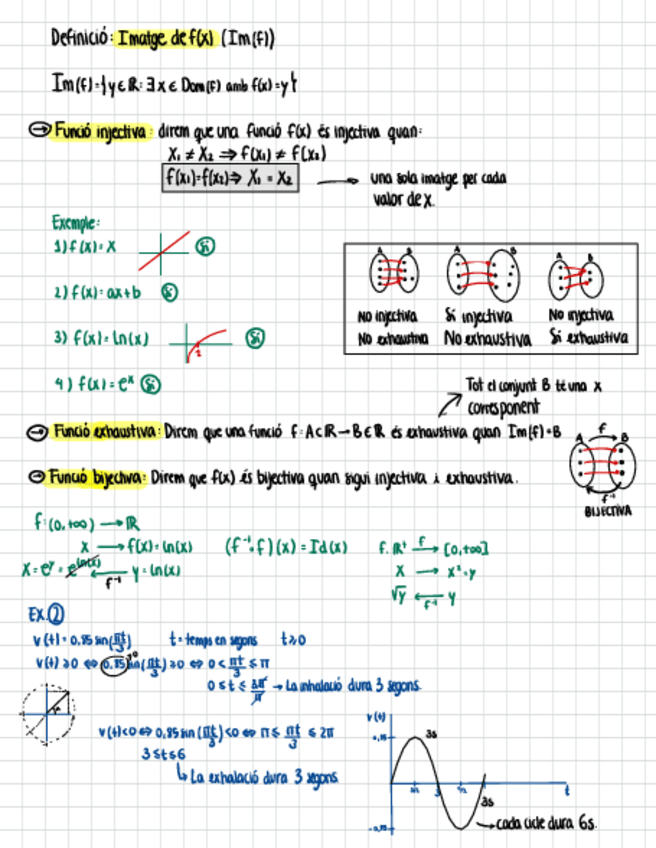 Definició: Imatge de f(x) (Im(f))
Im(f)={y∈ℝ: ∃x∈Dom(f) amb f(x)=y}
→ Funció injectiva: direm que una funció f(x) és injectiva quan:
X₁ ≠ X₂ ⇒ f(x₁) ≠ f(x₂)
f(x₁)=f(x₂) ⇒ X₁ = X₂ → una sola imatge per cada
valor de x.
Exemple:
1) f(x)=x Sí
2) f(x)=ax+b Sí
3) f(x)=ln(x) 1 Sí
4) f(x)=eˣ Sí
A B A B A B
No injectiva Sí injectiva No injectiva
No exhaustiva No exhaustiva Sí exhaustiva
Tot el conjunt B té una x
corresponent
→ Funció exhaustiva: Direm que una funció f: A⊂ℝ→B∈ℝ és exhaustiva quan Im(f)=B
A f B
f⁻¹
BIJECTIVA
→ Funció bijectiva: Direm que f(x) és bijectiva quan sigui injectiva i exhaustiva.
f:(0,+∞) → ℝ
x → f(x)=ln(x)
X=eʸ=e^(ln(x)) ← f⁻¹ y=ln(x)
(f⁻¹∘f)(x)=Id(x)
f: ℝ⁺ f→ [0,+∞]
x → x²=y
√y ← f⁻¹ y
EX.②
v(t)=0,85 sin(πt/3) t=temps en segons t≥0
v(t)≥0 ⇔ 0,85 sin(πt/3)≥0 ⇔ 0<πt/3≤π
0≤t≤3π/π → La inhalació dura 3 segons.
v(t)<0⇔0,85sin(πt/3)<0⇔π≤πt/3≤2π
3≤t≤6
↳ La exhalació dura 3 segons.
v(t)
0,85
3s
3
t
3s
-0,85
→ cada cicle dura 6s.